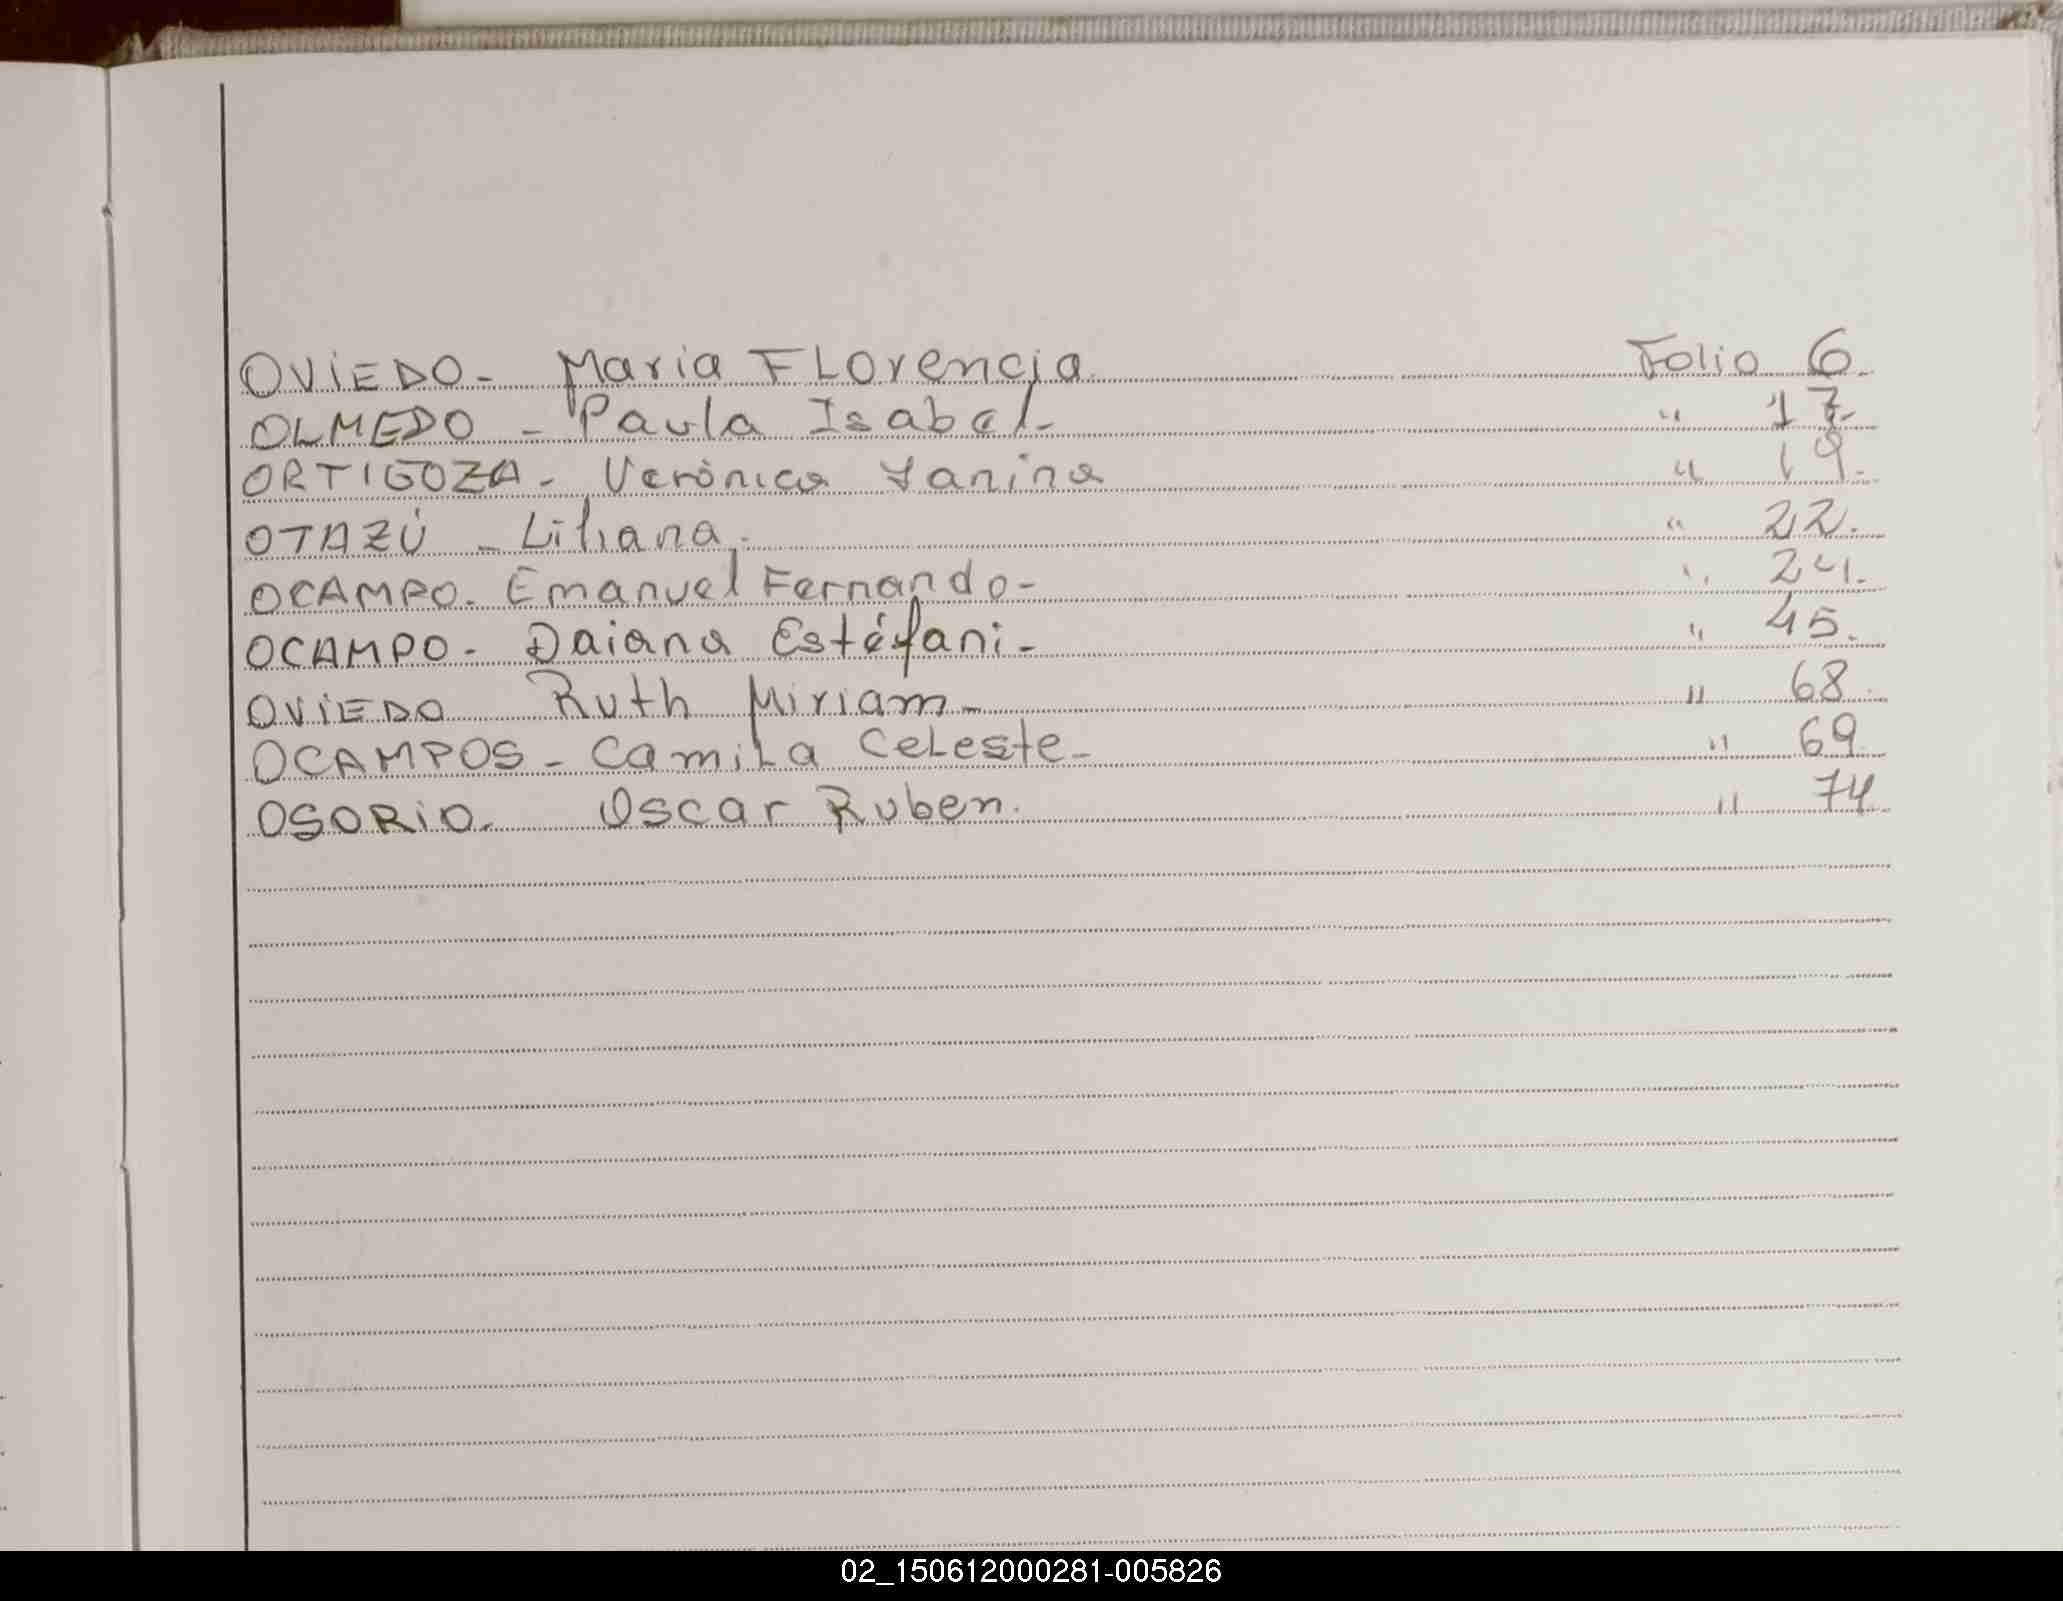 OVIEDO - Maria FLorencia Folio 6.
OLMEDO - Paula Isabel - " 17.
ORTIGOZA - Verónica Yanina " 19.
OTAZÚ - Liliana. " 22.
OCAMPO. Emanuel Fernando - " 24.
OCAMPO - Daiana Estéfani - " 45.
OVIEDO Ruth Miriam - " 68.
OCAMPOS - Camila CeLeste - " 69
OSORIO. Oscar Ruben. " 74
02_150612000281-005826